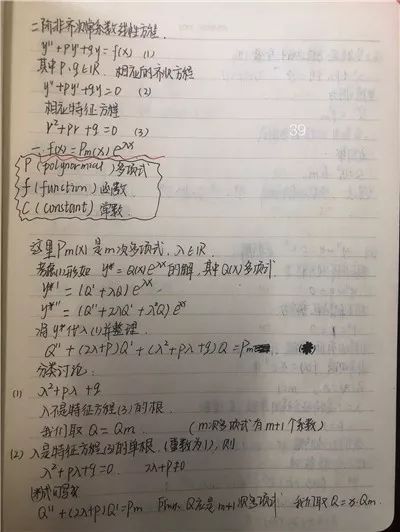 二阶非齐次常系数线性方程.
y''+py'+qy=f(x) (1)
其中P.q∈IR. 相应的齐次方程
y''+py'+qy=0 (2)
相应特征方程
r²+pr+q=0 (3)
39
一. f(x)=Pm(x)e^λx
P (polynormical) 多项式
f (function) 函数
C (constant) 常数
这里Pm(x)是m次多项式, λ∈IR.
考虑(1)形如 y*=Q(x)e^λx的解,其中Q(x)多项式
y*'=(Q'+λQ)e^λx
y*''=(Q''+2λQ'+λ²Q)e^λx
将y*代入(1)并整理.
Q''+(2λ+p)Q'+(λ²+pλ+q)Q=Pm
分类讨论:
(1) λ²+pλ+q
λ不是特征方程(3)的根.
我们取Q=Qm. (m次多项式有m+1个系数)
(2) λ是特征方程(3)的单根.(重数为1),则
λ²+pλ+q=0. 2λ+p≠0
Q''+(2λ+p)Q'=Pm 所以 Q应是m+1次多项式 我们取Q=x·Qm.